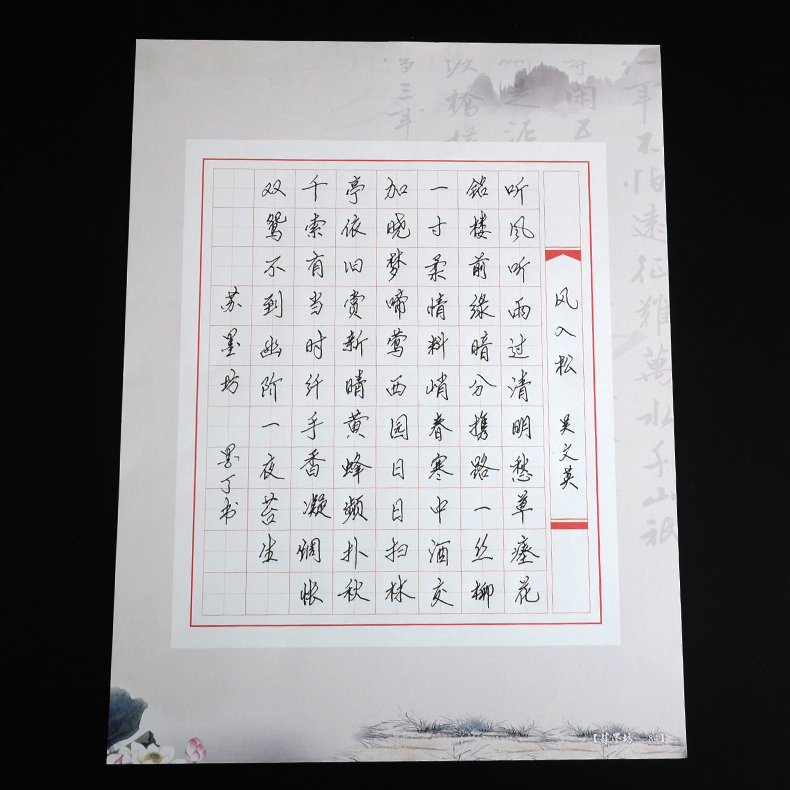 軍不怕遠征難萬水千山衹
风入松 吴文英
听风听雨过清明愁草瘗花
铭楼前绿暗分携路一丝柳
一寸柔情料峭春寒中酒交
加晓梦啼莺西园日日扫林
亭依旧赏新晴黄蜂频扑秋
千索有当时纤手香凝惆怅
双鸳不到幽阶一夜苔生
苏墨坊 墨丁书